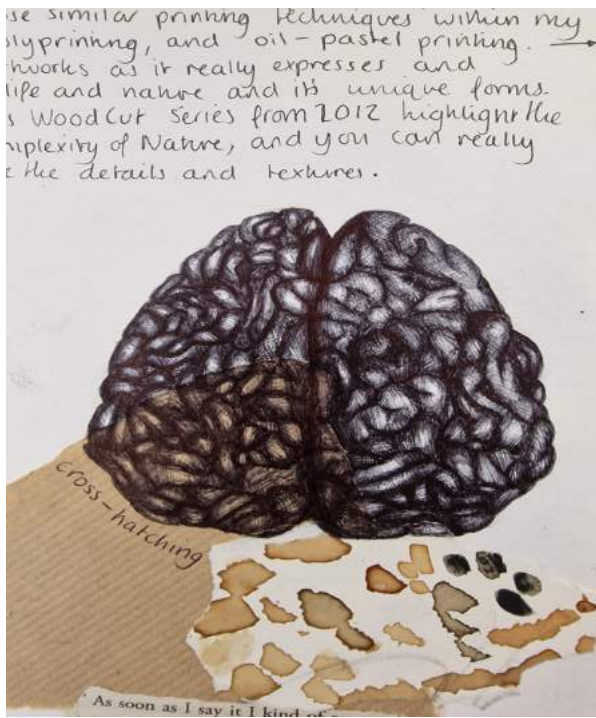 similar printing techniques within my
printing, and oil-pastel printing.
as it really expresses and
life and nature and its unique forms.
WoodCut Series from 2012 highlight the
of Nature, and you can really
the details and textures.
cross-hatching
As soon as I say it I kind of